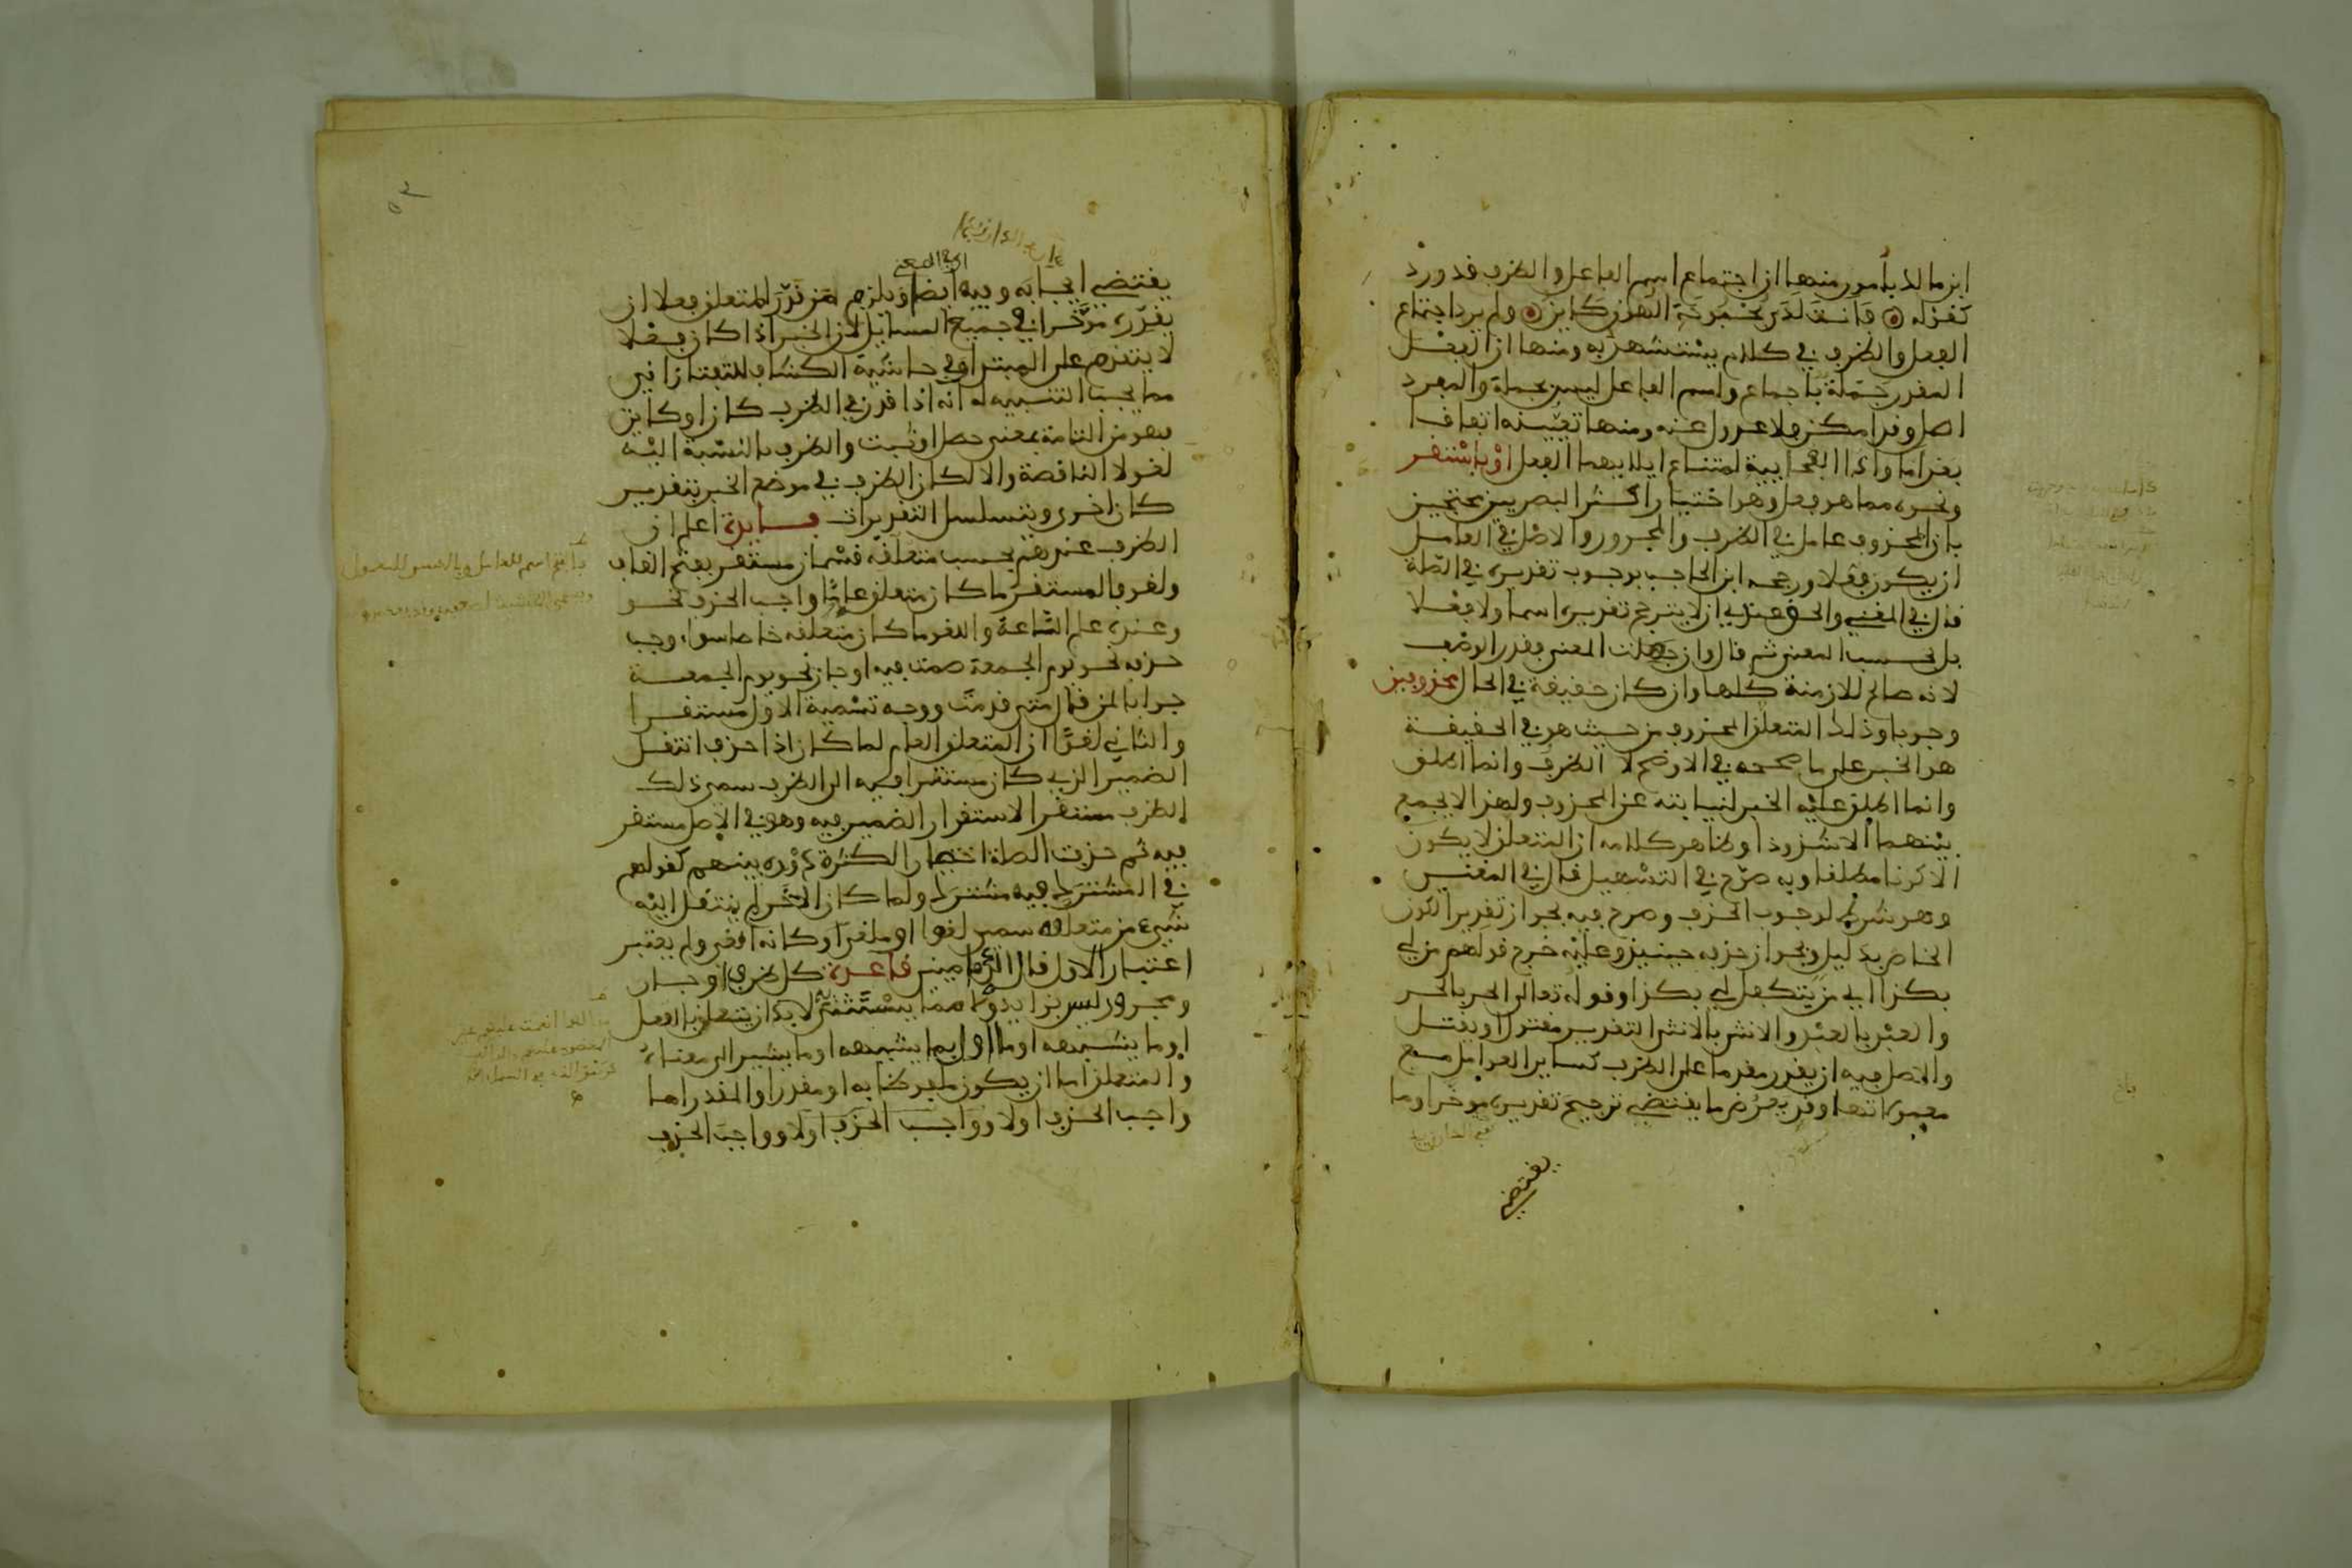 ابن مالك بأمور منها ان اجتماع اسم الفاعل والظرف قد ورد
كقوله فانت لدى بحبوحة الهون كائن ولم يرد اجتماع
الفعل والظرف في كلام يستشهد به ومنها ان الفعل
المقدر جملة باجماع واسم الفاعل ليس بجملة والمفرد
اصل وقد امكن فلا عدول عنه ومنها تعينه اتفاقا
بعد اما واذا الفجايية لامتناع ايلايهما الفعل او باستقر
ونحوه مما هو فعل وهو اختيار اكثر البصريين محتجين
بان المحذوف عامل في الظرف والمجرور والاصل في العامل
ان يكون فعلا ورجحه ابن الحاجب بوجوب تقديره في الصلة
قال في المغني والحق عندي ان لا يترجح تقديره اسما ولا فعلا
بل بحسب المعنى ثم قال وان جهلت المعنى فقدر الوصف
لانه صالح للازمنة كلها وان كان حقيقة في الحال محذوفين
وجوبا وذلك المتعلق المحذوف من حيث هو في الحقيقة
هو الخبر على ما صححه في الاوضح لا الظرف وانما اطلق
وانما اطلق عليه الخبر لنيابته عن المحذوف ولهذا لا يجمع
بينهما الا شذوذا وظاهر كلامه ان المتعلق لا يكون
الا كونا مطلقا وبه صرح في التسهيل قال في المغني
وهو شرط لوجوب الحذف وصرح فيه بجواز تقدير الكون
الخاص بدليل وبجواز حذفه حينيذ وعليه خرج قولهم من لي
بكذا اي من يتكفل لي بكذا وقوله تعالى الحر بالحر
والعبد بالعبد والانثى بالانثى التقدير مقتول او يقتل
والاصل فيه ان يقدر مقدما على الظرف كساير العوامل مع
معمولاتها وقد يعرض ما يقتضي ترجيح تقديره موخرا وما
يقتضي
يقتضي ايجابه وفيه ايضا ويلزم من قدر المتعلق فعلا ان
يقدره موخرا في جميع المسايل لان الخبر اذا كان فعلا
لا يتقدم على المبتدا وفي حاشية الكشاف للتفتازاني
مما يجب التنبيه له انه اذا قدر في الظرف كان او كاين
فهو من التامة بمعنى حصل او ثبت والظرف بالنسبة اليه
لغو لا الناقصة والا لكان الظرف في موضع الخبر بتقدير
كان اخرى ويتسلسل التقديرات فايدة اعلم ان
الظرف عندهم بحسب متعلقه قسمان مستقر بفتح القاف
ولغو فالمستقر ما كان متعلقه عاما واجب الحذف نحو
وعنده علم الساعة واللغو ما كان متعلقه خاصا سواء وجب
حذفه نحو يوم الجمعة صمت فيه او جاز نحو يوم الجمعة
جوابا لمن قال متى قدمت ووجه تسمية الاول مستقرا
والثاني لغوا ان المتعلق العام لما كان اذا حذف انتقل
الضمير الذي كان مستقرا فيه الى الظرف سمي ذلك
الظرف مستقرا لاستقرار الضمير فيه وهو في الاصل مستقر
فيه ثم حذفت الصلة اختصارا لكثرة دوره بينهم كقولهم
في المشترك فيه مشترك ولما كان الاخر لم ينتقل اليه
شيء من متعلقه سمي لغوا او ملغى وكانه الغي ولم يعتبر
اعتبار الاول قال الدماميني قاعدة كل ظرف او جار
ومجرور ليس بزايد ولا مما يستثنى به لا بد ان يتعلق بالفعل
او ما يشبهه او ما اول بما يشبهه او ما يشير الى معناه
والمتعلق اما ان يكون ملفوظا به او مقدرا والمقدر اما
واجب الحذف اولا وواجب الحذف اولا وواجب الحذف